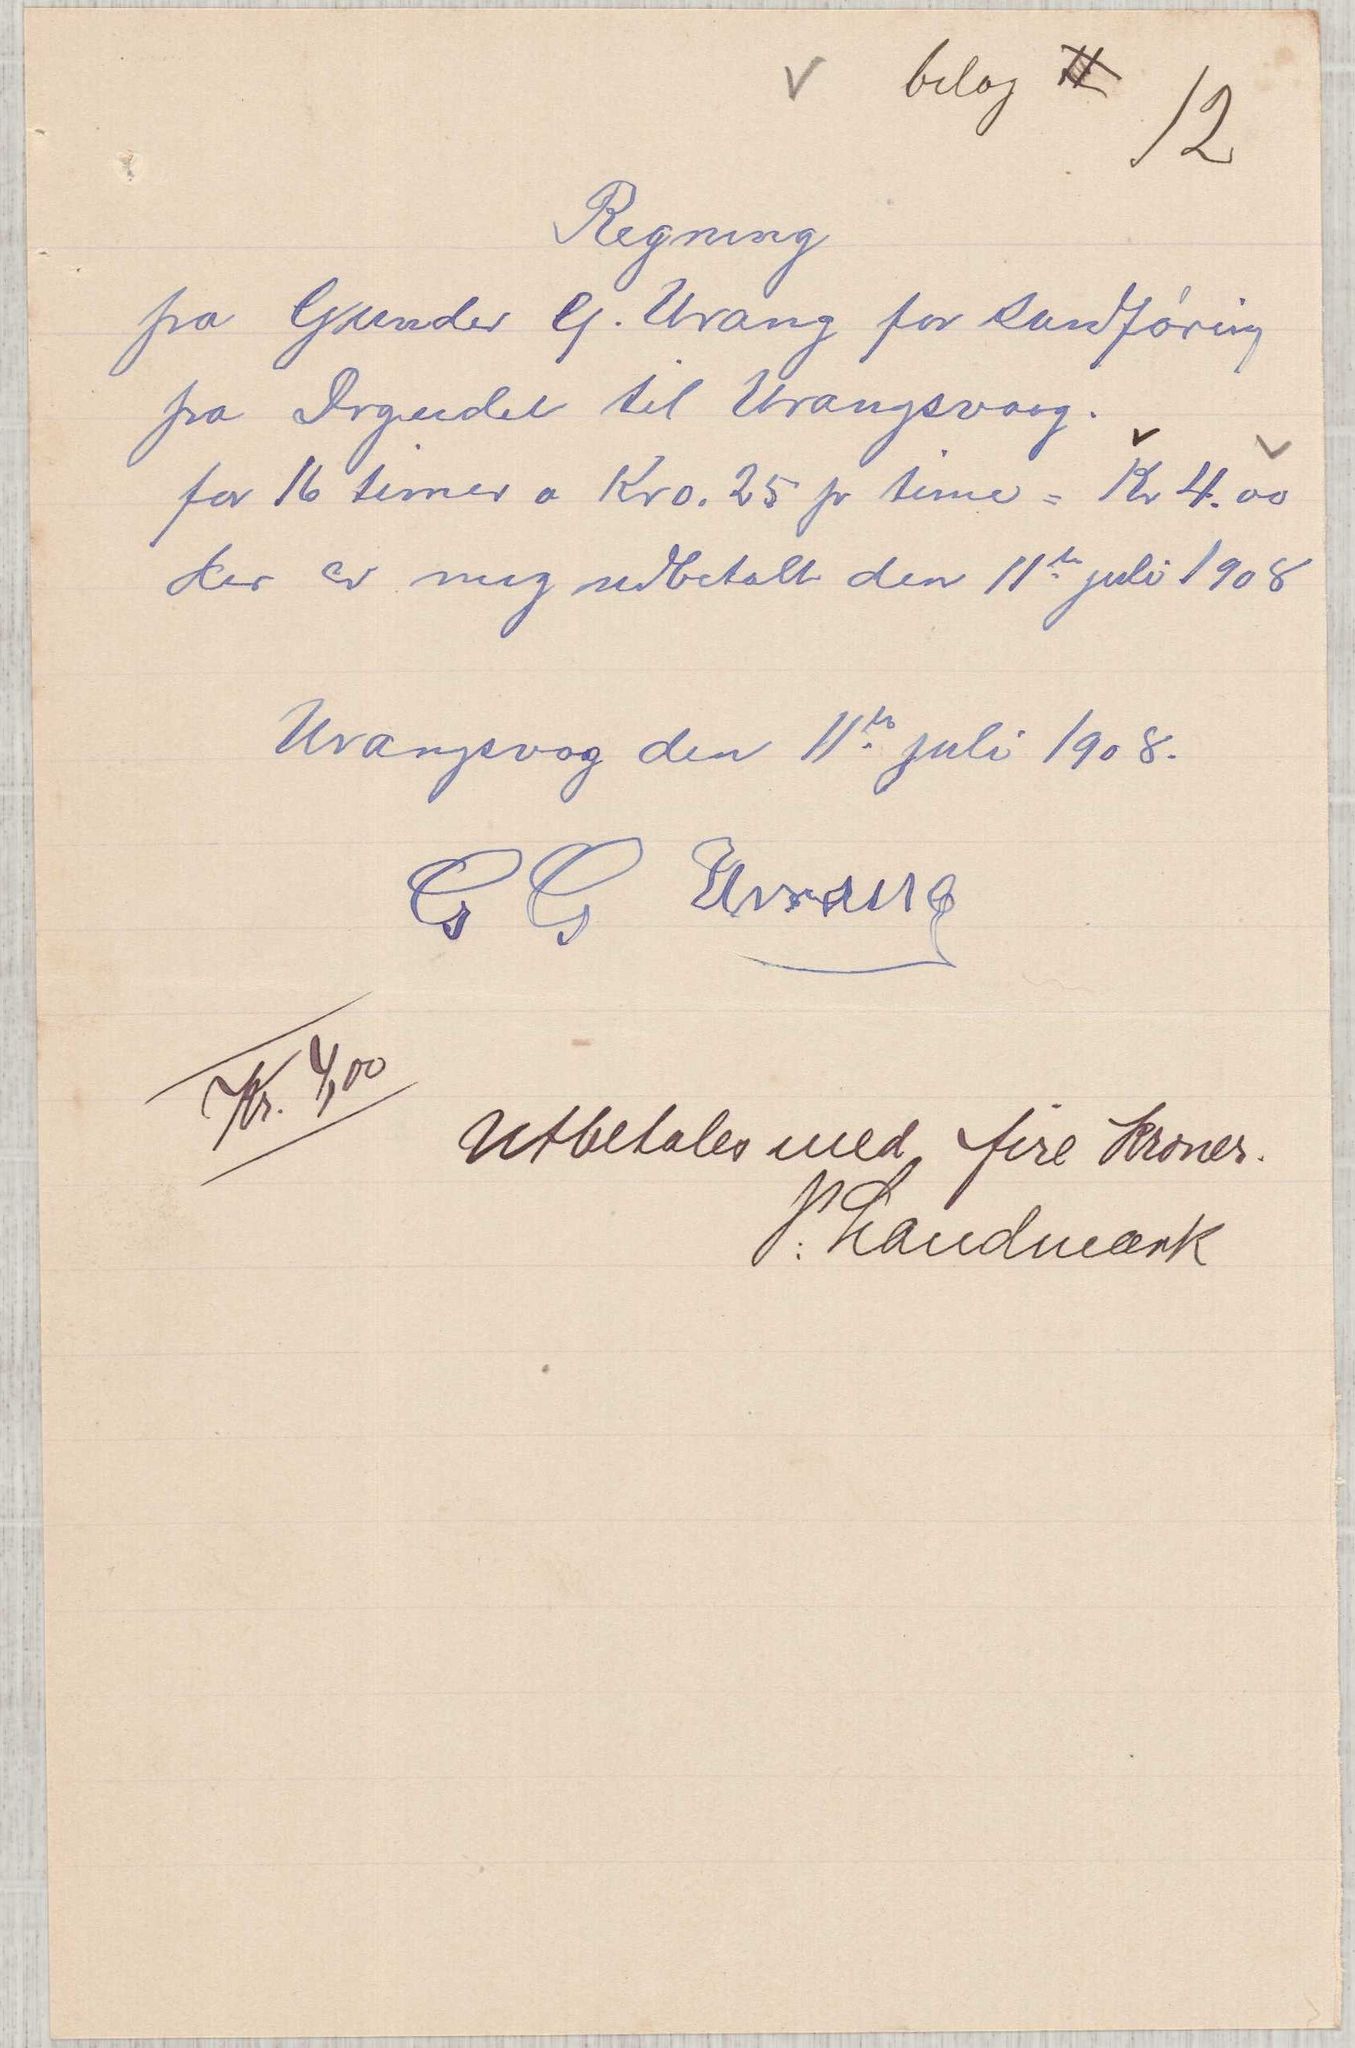 bilag 12
Regning
fra Gunder G. Urang for sandføring
fra til Urangsvaag.
for 16 timer a Kr 0.25 pr time = Kr 4.00
der er mig udbetalt den 11te juli 1908
Urangsvog den 11te juli 1908.
G G Urang
Kr. 4,00
Utbetales med fire kroner.
P. Landmark